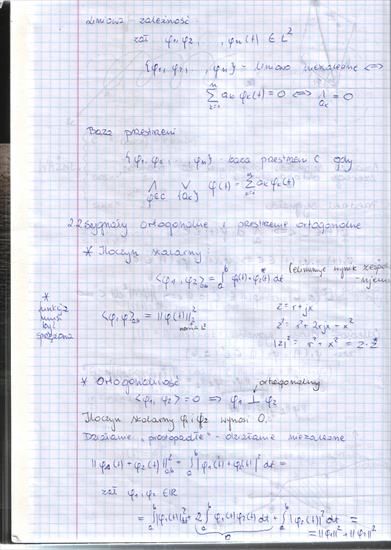 Liniowa zależność
zał φ₁, φ₂, , φₙ(t) ∈ L²
{φ₁, φ₂, , φₙ} - liniowo niezależne ⟺
∑ aₖ φₖ(t) = 0 ⟺ ⋀ aₖ = 0
Baza przestrzeni
{φ₁, φ₂, , φₙ} - baza przestrzeni C gdy
⋀ φ∈C ⋁ {aₖ} φ(t) = ∑ aₖ φₖ(t)
2.2 Sygnały ortogonalne i przestrzenie ortogonalne
* Iloczyn skalarny:
⟨φ₁, φ₂⟩ab = ∫ₐᵇ φ(t)·φ*(t) dt (eliminuje wynik zespolony)
* funkcja musi być sprzężona
⟨φ, φ⟩ab = ||φ(t)||² norma L²
z = r + jx
z² = r² + 2rjx - x²
|z|² = r² + x² = z·z*
* Ortogonalność ortogonalny
⟨φ₁, φ₂⟩ = 0 ⟹ φ₁ ⊥ φ₂
Iloczyn skalarny φ₁ i φ₂ wynosi 0.
Działanie "prostopadłe" - działanie niezależne
||φ₁(t) + φ₂(t)||²ab = ∫ₐᵇ |φ₁(t) + φ₂(t)|² dt =
zał φ₁, φ₂ ∈ R
= ∫ₐᵇ |φ₁(t)|² dt + 2∫ₐᵇ φ₁(t) φ₂(t) dt + ∫ₐᵇ |φ₂(t)|² dt =
0
= ||φ₁||² + ||φ₂||²